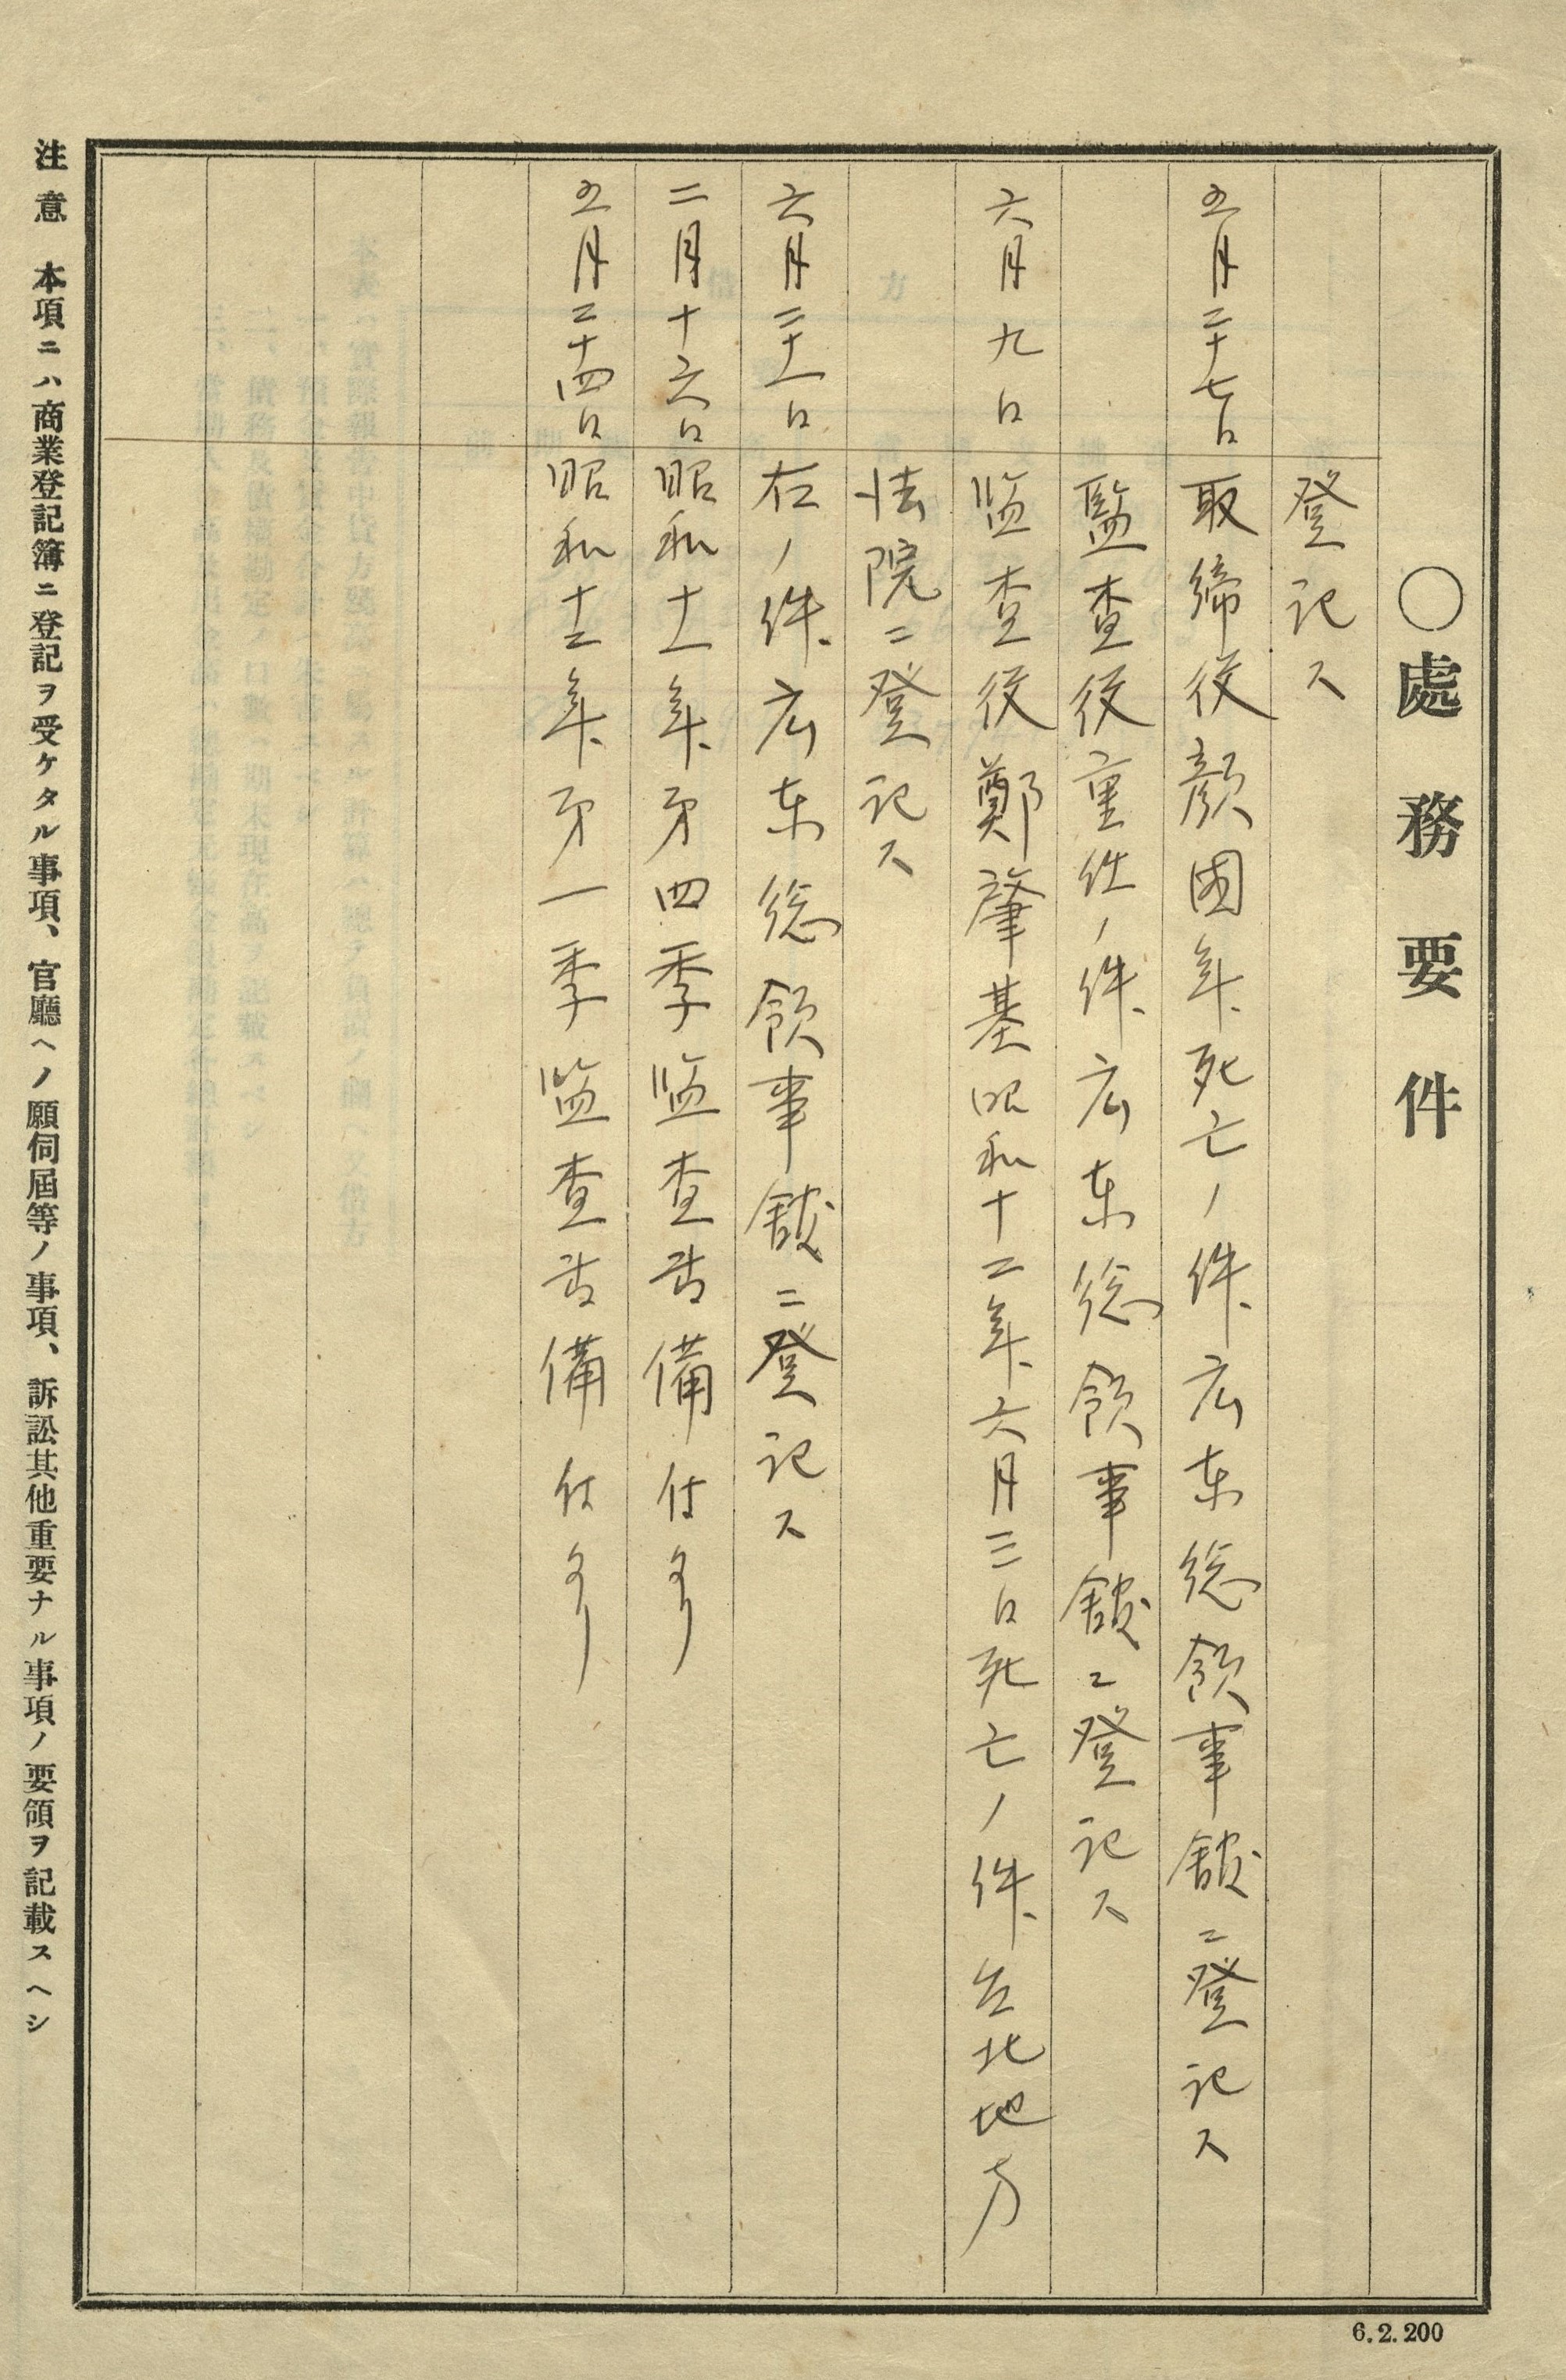 〇處務要件
登記ス
五月二十七日 取締役顔国年死亡ノ件広东総領事館ニ登記ス
監査役重任ノ件広东総領事館ニ登記ス
六月九日 监査役鄭肇基昭和十二年六月三日死亡ノ件台北地方
法院ニ登記ス
六月二十一日 右ノ件広东総領事館ニ登記ス
二月十六日 昭和十一年第四季监査書備付ケ
五月二十四日 昭和十二年第一季监査書備付ケ
注意 本項ニハ商業登記簿ニ登記ヲ受ケタル事項、官廳ヘノ願伺屆等ノ事項、訴訟其他重要ナル事項ノ要領ヲ記載スヘシ
6.2.200